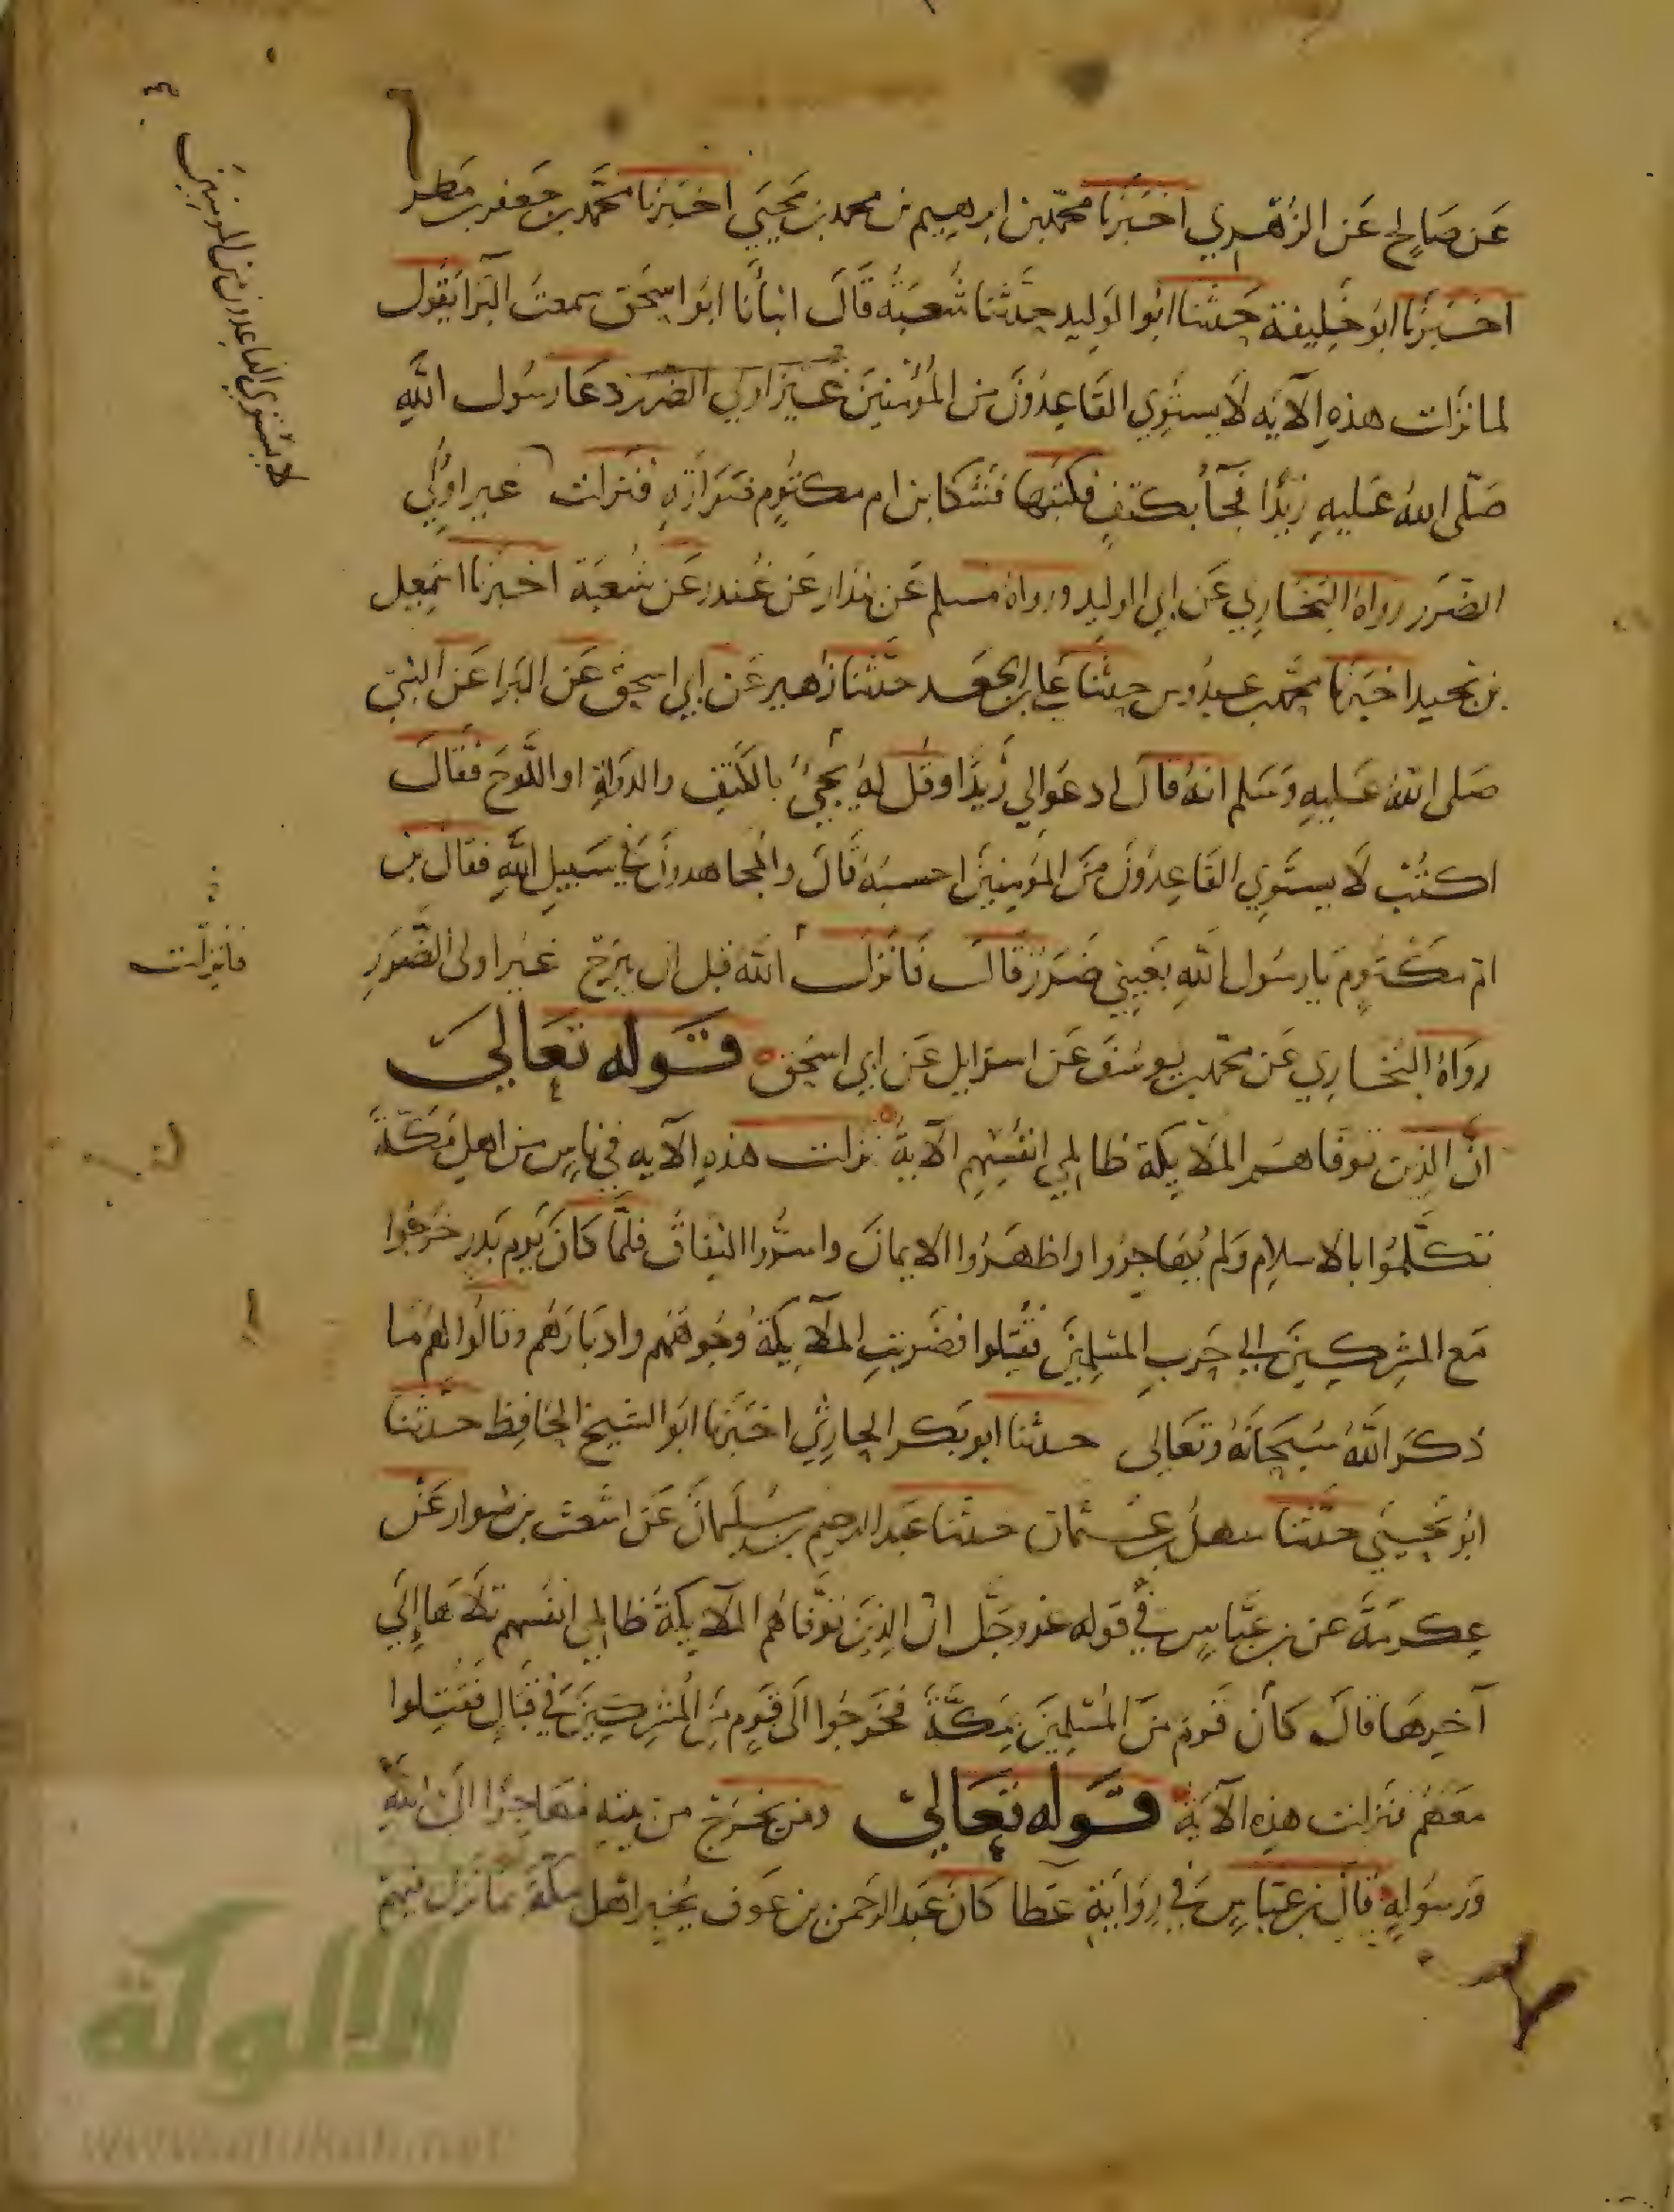 عَن صَالحٍ عَن الزُهْري اخبَرنا محمد بن ابرهيم بن محمد بن يَحيَي اخبَرنا محمَّد بن جَعفر بن مَطر
اخبَرنا ابو خليفة حَدثنا ابو الوَليد حدَّثنا شُعبَةُ قَالَ انبأنا ابوَ اسحَق سمعتُ البَرا يَقُول
لما نزَلت هذهِ الآيَه لاَ يستوِي القَاعِدُونَ من المُؤْمنِينَ غَيرُ اولي الضرَر دعَا رسُول اللَّهِ
صَلّى اللهُ عَليهِ زيْدًا فجآ بكتفٍ فكتبَها فشَكا بن ام مكتُومٍ ضَرَارَتهِ فنزلت غير اوُلي
الضَرَر رواهُ البخَاري عَن ابي الوليد ورواهُ مسلم عَن بندَار عَن غُندر عَن شُعبَة اخبرنَا اسمعِيل
بن نجيد اخبَرنا محمَّد بن عبدُوس حدثنَا عَلي بن الجَعَد حدَّثنا زُهير عَن ابي اسحق عَن البَرا عَن النبيّ
صَلى اللهُ عَليهِ وَسَلم انهُ قالَ ادعوَا لي زَيدًا وقُل لهُ يَجيُ بالكَتِف والدَواةِ او اللَّوحَ فَقَالَ
اكتُبْ لاَ يستَوِي القَاعِدُونَ مِنَ المُؤمِنِينَ احسبُهُ قَالَ والمُجاهدونَ في سَبيِلِ اللَّهِ فقال بن
ام مكْتُومٍ يَا رسُول اللهِ بعَينِي ضَرَرٌ قالَ فانزلَ اللهُ قبل ان يبرَحَ غَيرُ اولى الضَّرَرِ
رواهُ البُخَاري عَن محمّد بن يوسُف عَن اسرَايل عَن ابي اسحَق قَوله تعَالَي
انَّ الذِين توَفّاهُم الملاَيكة ظالمي انفُسِهِم الآية نزلت هذهِ الآيه في ناسٍ من اهلِ مَكَّةَ
تكلَّمُوا بالاسلامِ وَلم يُهَاجِرُوا واظهَرُوا الايمانَ واسَرُّوا النِفاقَ فلَمَّا كانَ يَوم بَدرِ خَرجُوا
مَع المشرِكِينَ الي حَربِ المسْلِمِينَ فقُتِلوا فضَربَت الملاَيكةُ وُجُوهَهُم وادبَارَهُم وَقالُوا لَهُم مَا
ذكرَ اللَّهُ سُبحَانَهُ وتعَالى حدثنا ابو بَكر الحارثِي اخبَرنا ابوَ الشيخ الحَافِظ حدّثنا
ابُو يَحيَي حدَّثنا سَهلُ بن عثمان حدثنا عَبد الرحِيمِ بن سُلَيمانَ عَن اشعَث بن سَوار عَنْ
عِكرمَةَ عن بن عَبَّاسٍ في قوله عَز وجَلَّ انّ الذِينَ توَفّاهُم الملآيكةُ ظالمي انفسهم تلاَهَا إلَي
آخِرهَا قالَ كانَ قَومٌ مِنَ المُسْلمِينَ بمَكَّةَ فخَرجُوا الَى قَومٍ مِنَ المُشرِكِينَ في قتَالٍ فقُتِلوا
معَهُم فنَزلت هذِه الآيَةُ قَوله تعَاليَ ومَن يخرُج من بيتهِ مهَاجِرًا الىَ اللهِ
وَرسُولهِ قالَ بن عبَّاس في رِوَايَةِ عَطا كانَ عَبد الرَحمن بن عَوف يُخبِرُ اهْل مكَّةَ بما نَزل فيهِم
لا يستوي القاعدون من المومنين
فانزلت
الألوكة
www.alukah.net